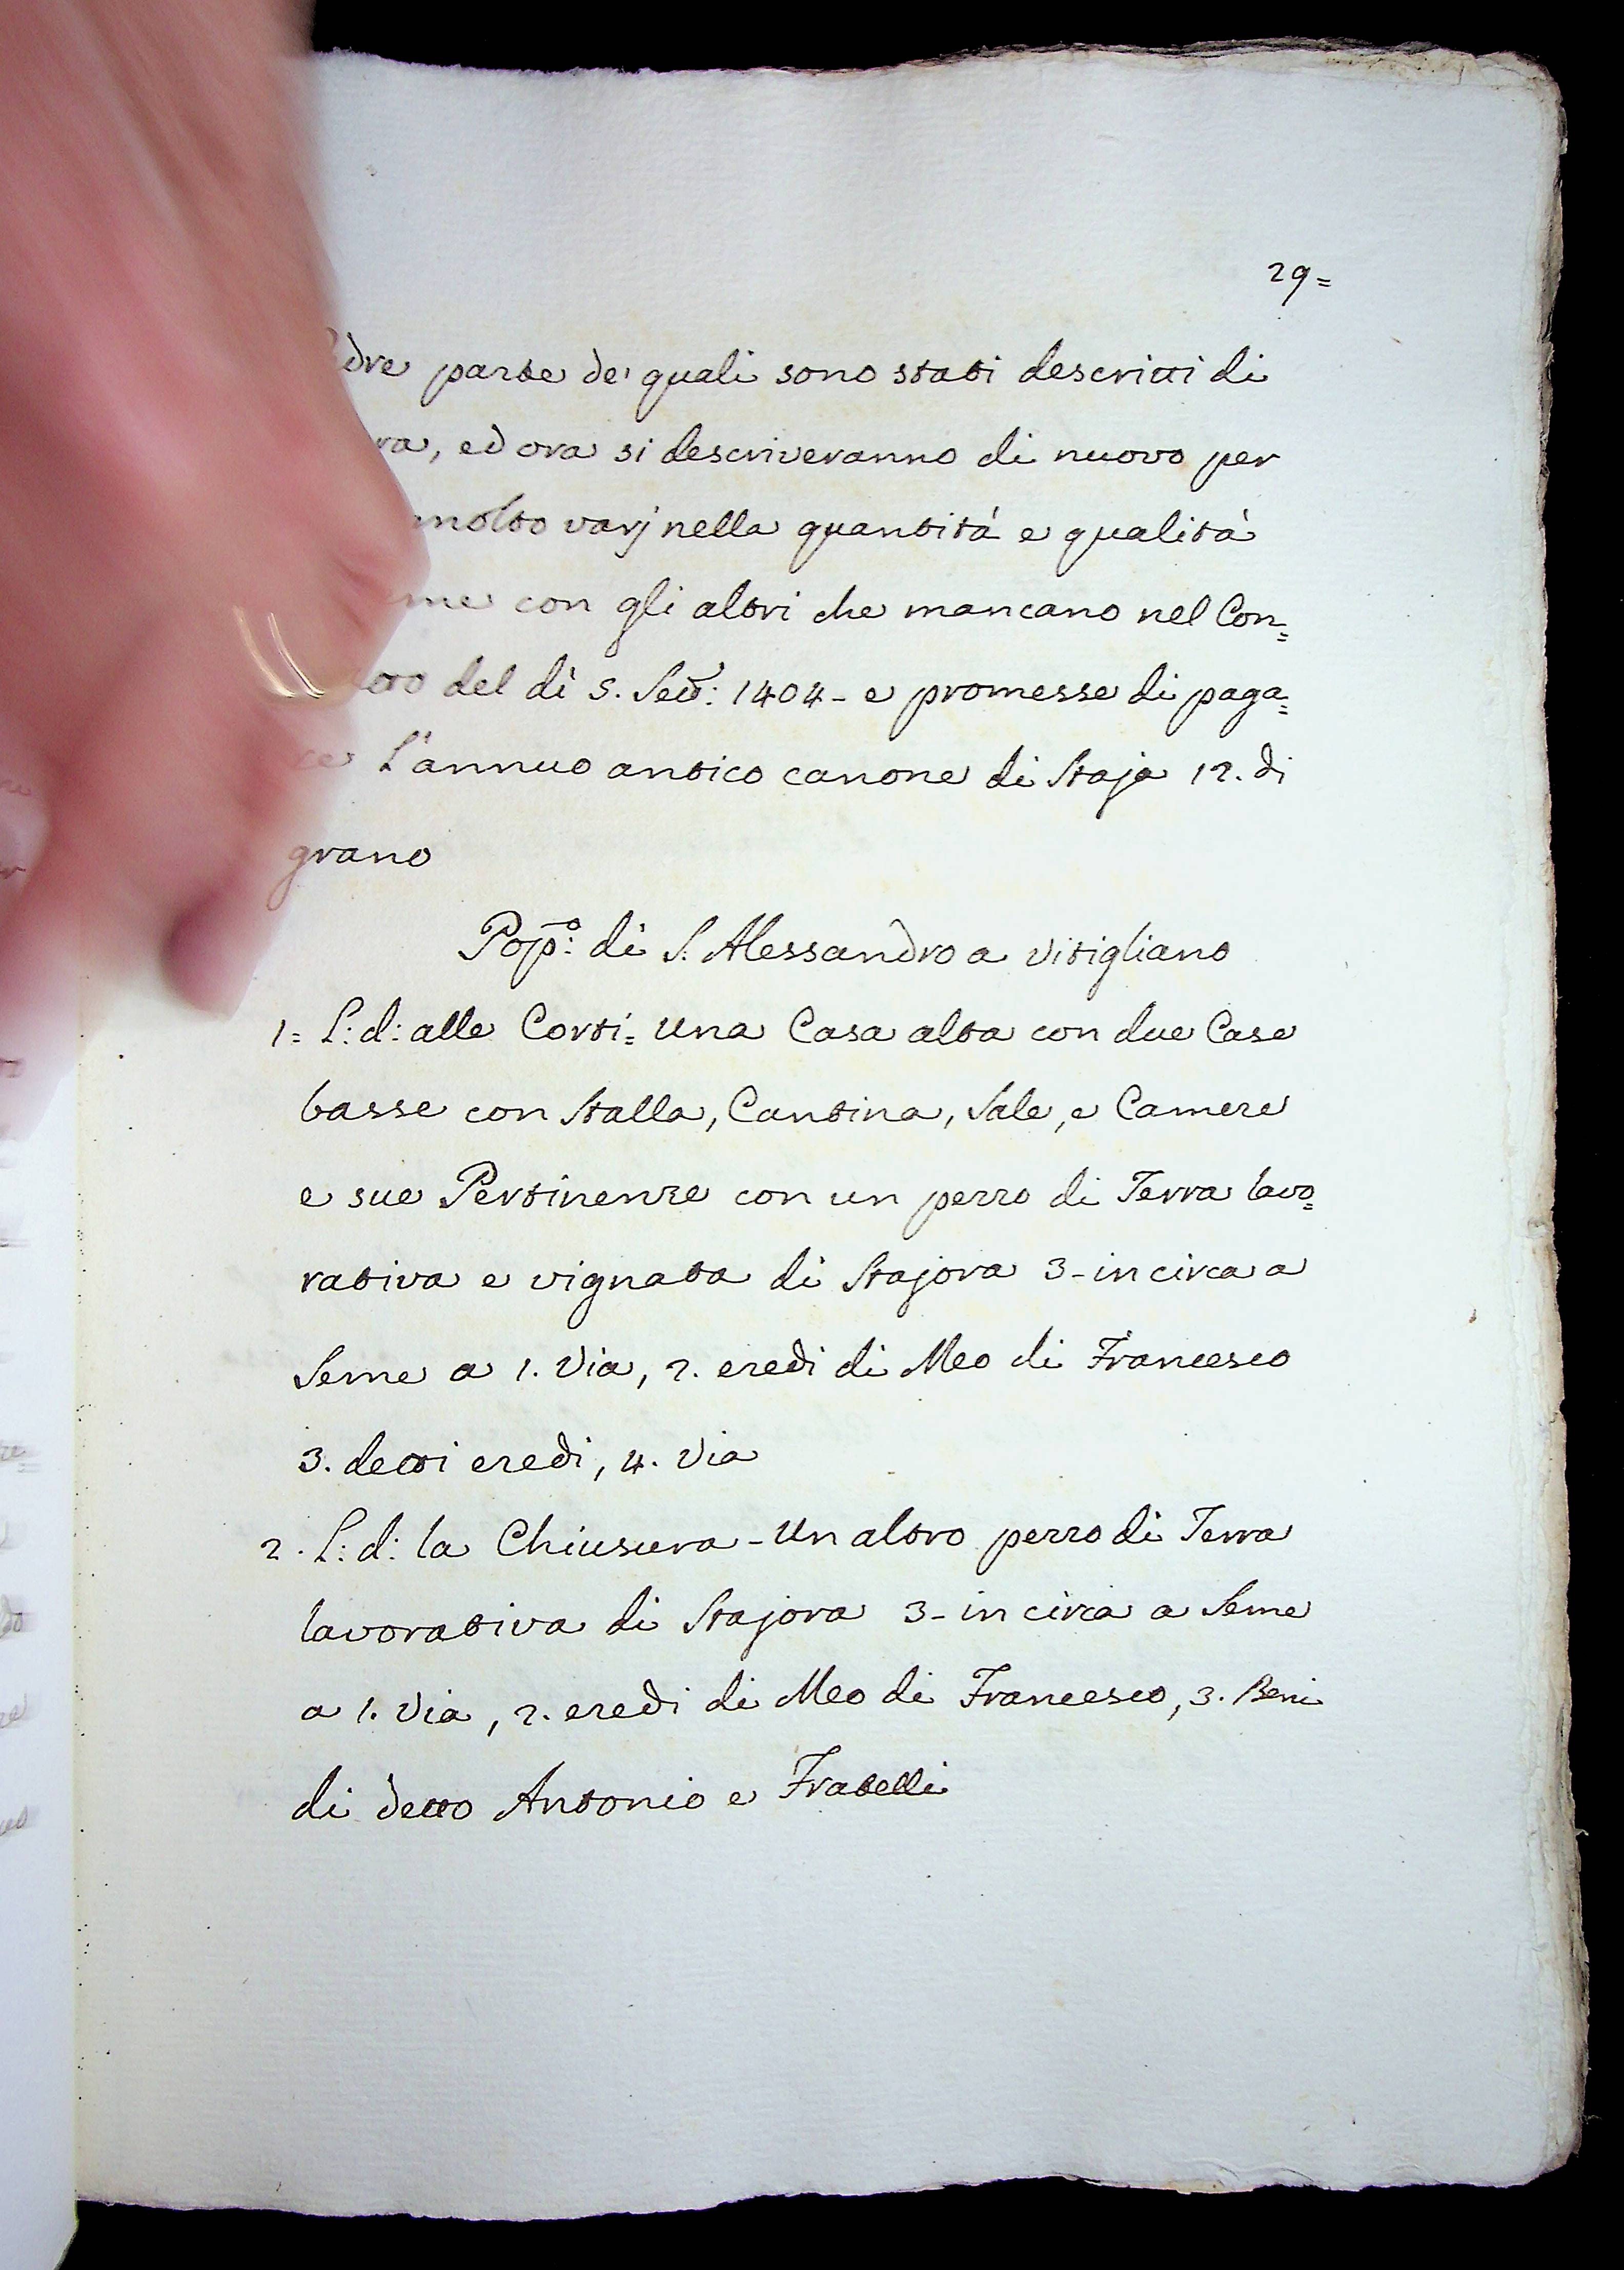 29=
parte de' quali sono stati descritti di
, ed ora si descriveranno di nuovo per
molto varj nella quantità e qualità
con gli altri che mancano nel Con=
del dì 5. Sett: 1404 - e promesse di paga=
re l'annuo antico canone di Staja 12. di
grano
Pop.º: di S. Alessandro a Vitigliano
1= L: d: alle Corti= Una Casa alta con due Case
basse con Stalla, Cantina, Sale, e Camere
e sue Pertinenze con un pezzo di Terra lavo=
rativa e vignata di Stajora 3 - in circa a
Seme a 1. Via, 2. eredi di Meo di Francesco
3. detti eredi, 4. Via
2. L: d: la Chiusura - Un altro pezzo di Terra
lavorativa di Stajora 3 - in circa a Seme
a 1. Via, 2. eredi di Meo di Francesco, 3. Beni
di detto Antonio e Fratelli